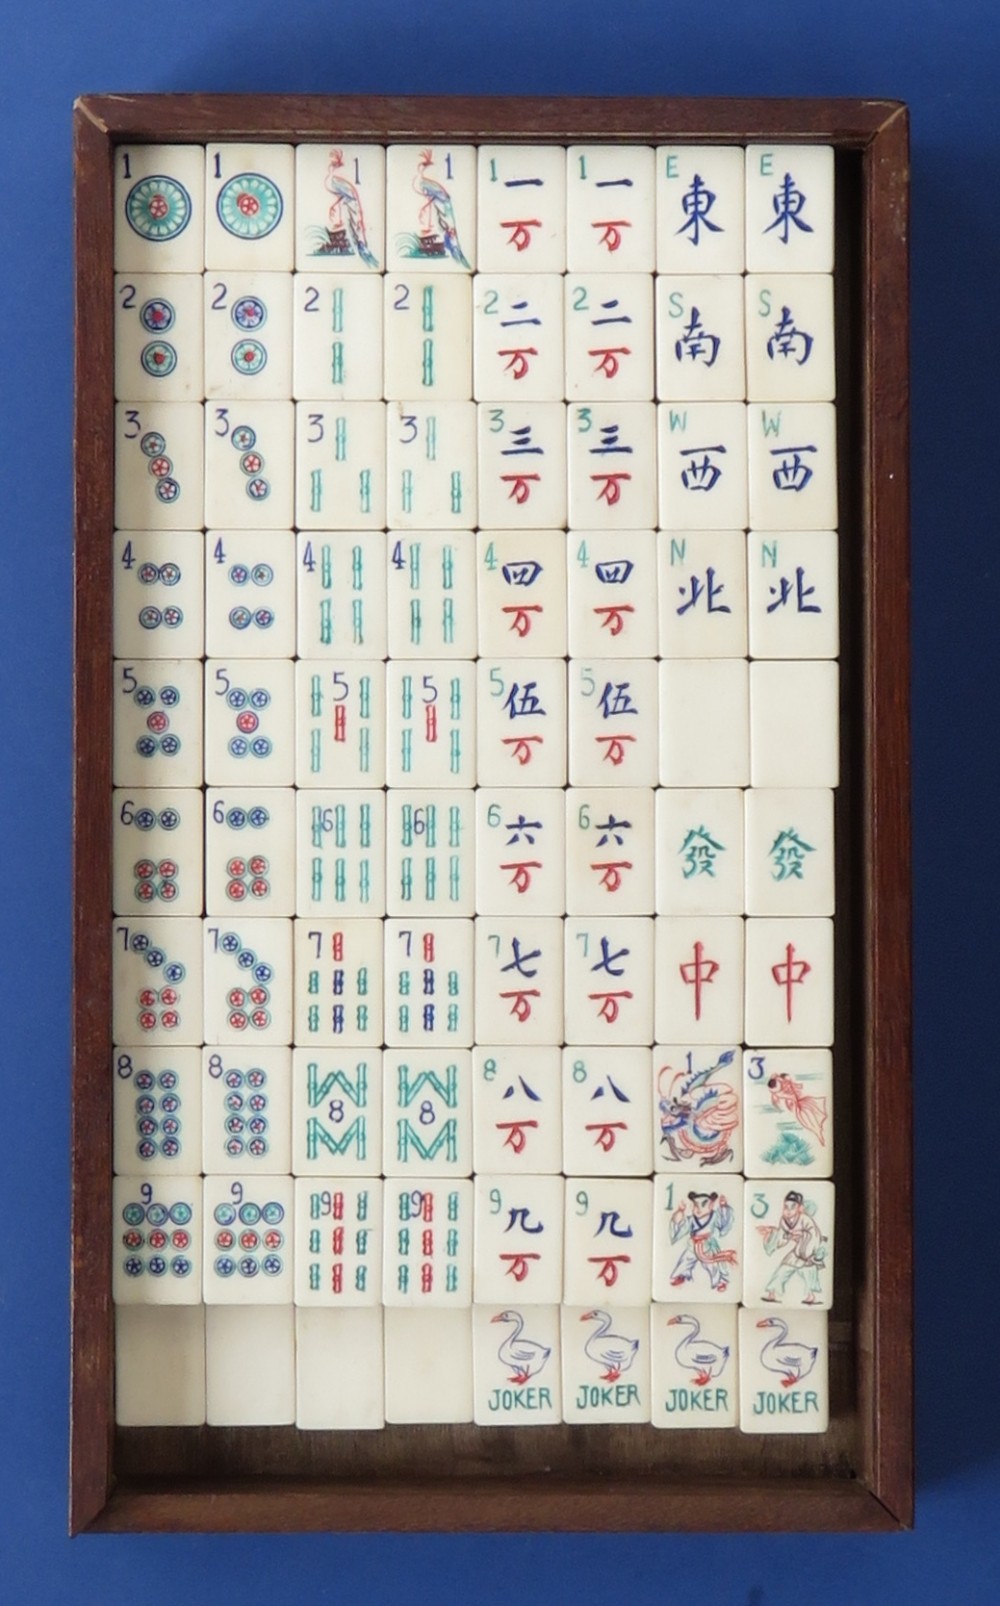 1 1 1 1 1 一 1 一 E 東 E 東
万 万
2 2 2 2 2 二 2 二 S 南 S 南
万 万
3 3 3 3 3 三 3 三 W 西 W 西
万 万
4 4 4 4 4 四 4 四 N 北 N 北
万 万
5 5 5 5 5 伍 5 伍
万 万
6 6 6 6 6 六 6 六 發 發
万 万
7 7 7 7 7 七 7 七 中 中
万 万
8 8 8 8 8 八 8 八 1 3
万 万
9 9 9 9 9 九 9 九 1 3
万 万
JOKER JOKER JOKER JOKER